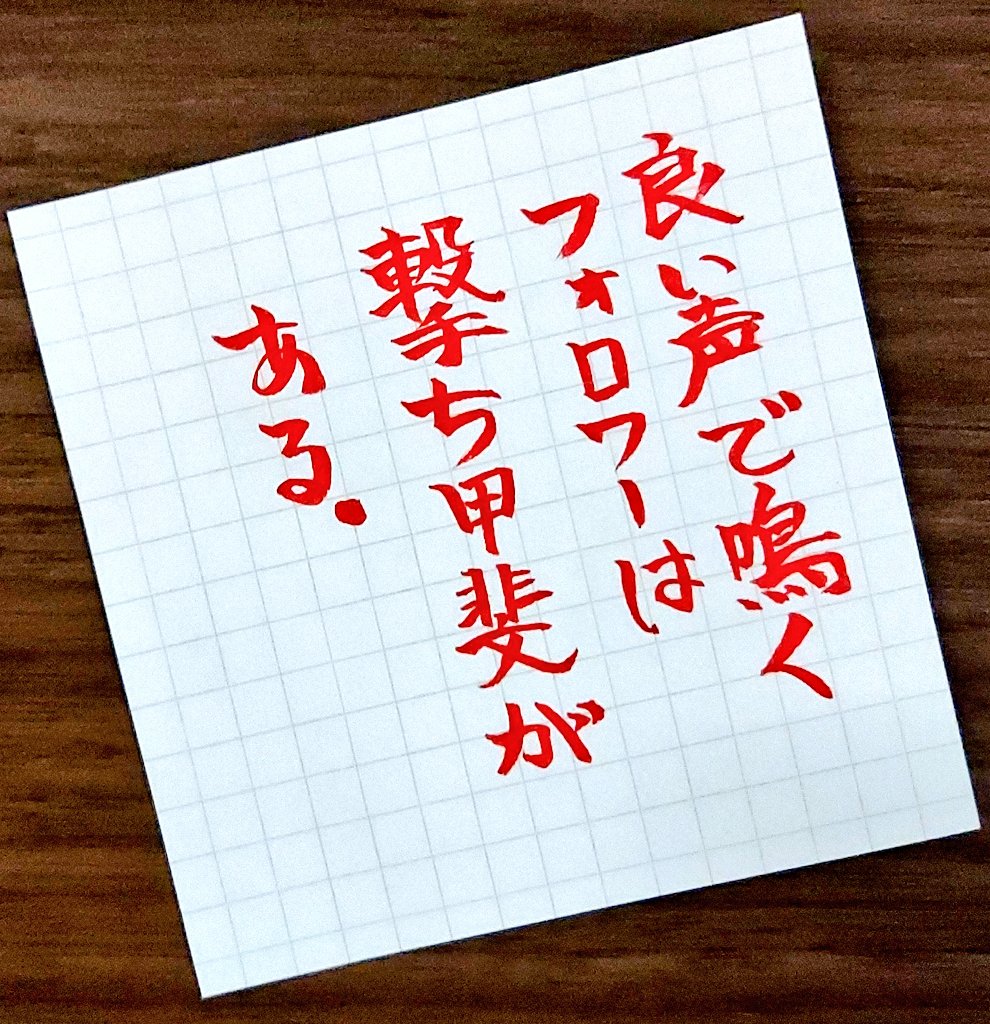 良い声で鳴く
フォロワーは
撃ち甲斐が
ある.